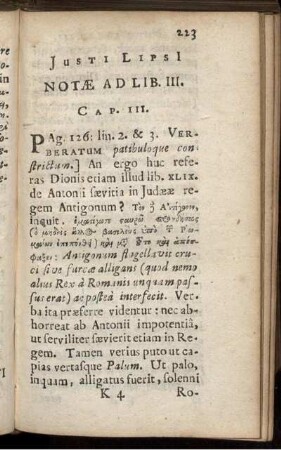 223
JUSTI LIPSI
NOTÆ AD LIB. III.
CAP. III.
PAg. 126: lin. 2. & 3. VER-
BERATUM patibuloque con
strictum.] An ergo huc refe-
ras Dionis etiam illud lib. XLIX.
de Antonii sævitia in Judææ re-
gem Antigonum?
inquit.
Antigonum flagellavit cru-
ci sive furcæ alligans (quod nemo
alius Rex à Romanis unquam pas-
sus erat) ac postea interfecit. Ver-
ba ita præferre videntur: nec ab-
horreat ab Antonii impotentiâ,
ut serviliter sævierit etiam in Re-
gem. Tamen verius puto ut ca-
pias vertasque Palum. Ut palo,
inquam, alligatus fuerit, solenni
K 4 Ro-